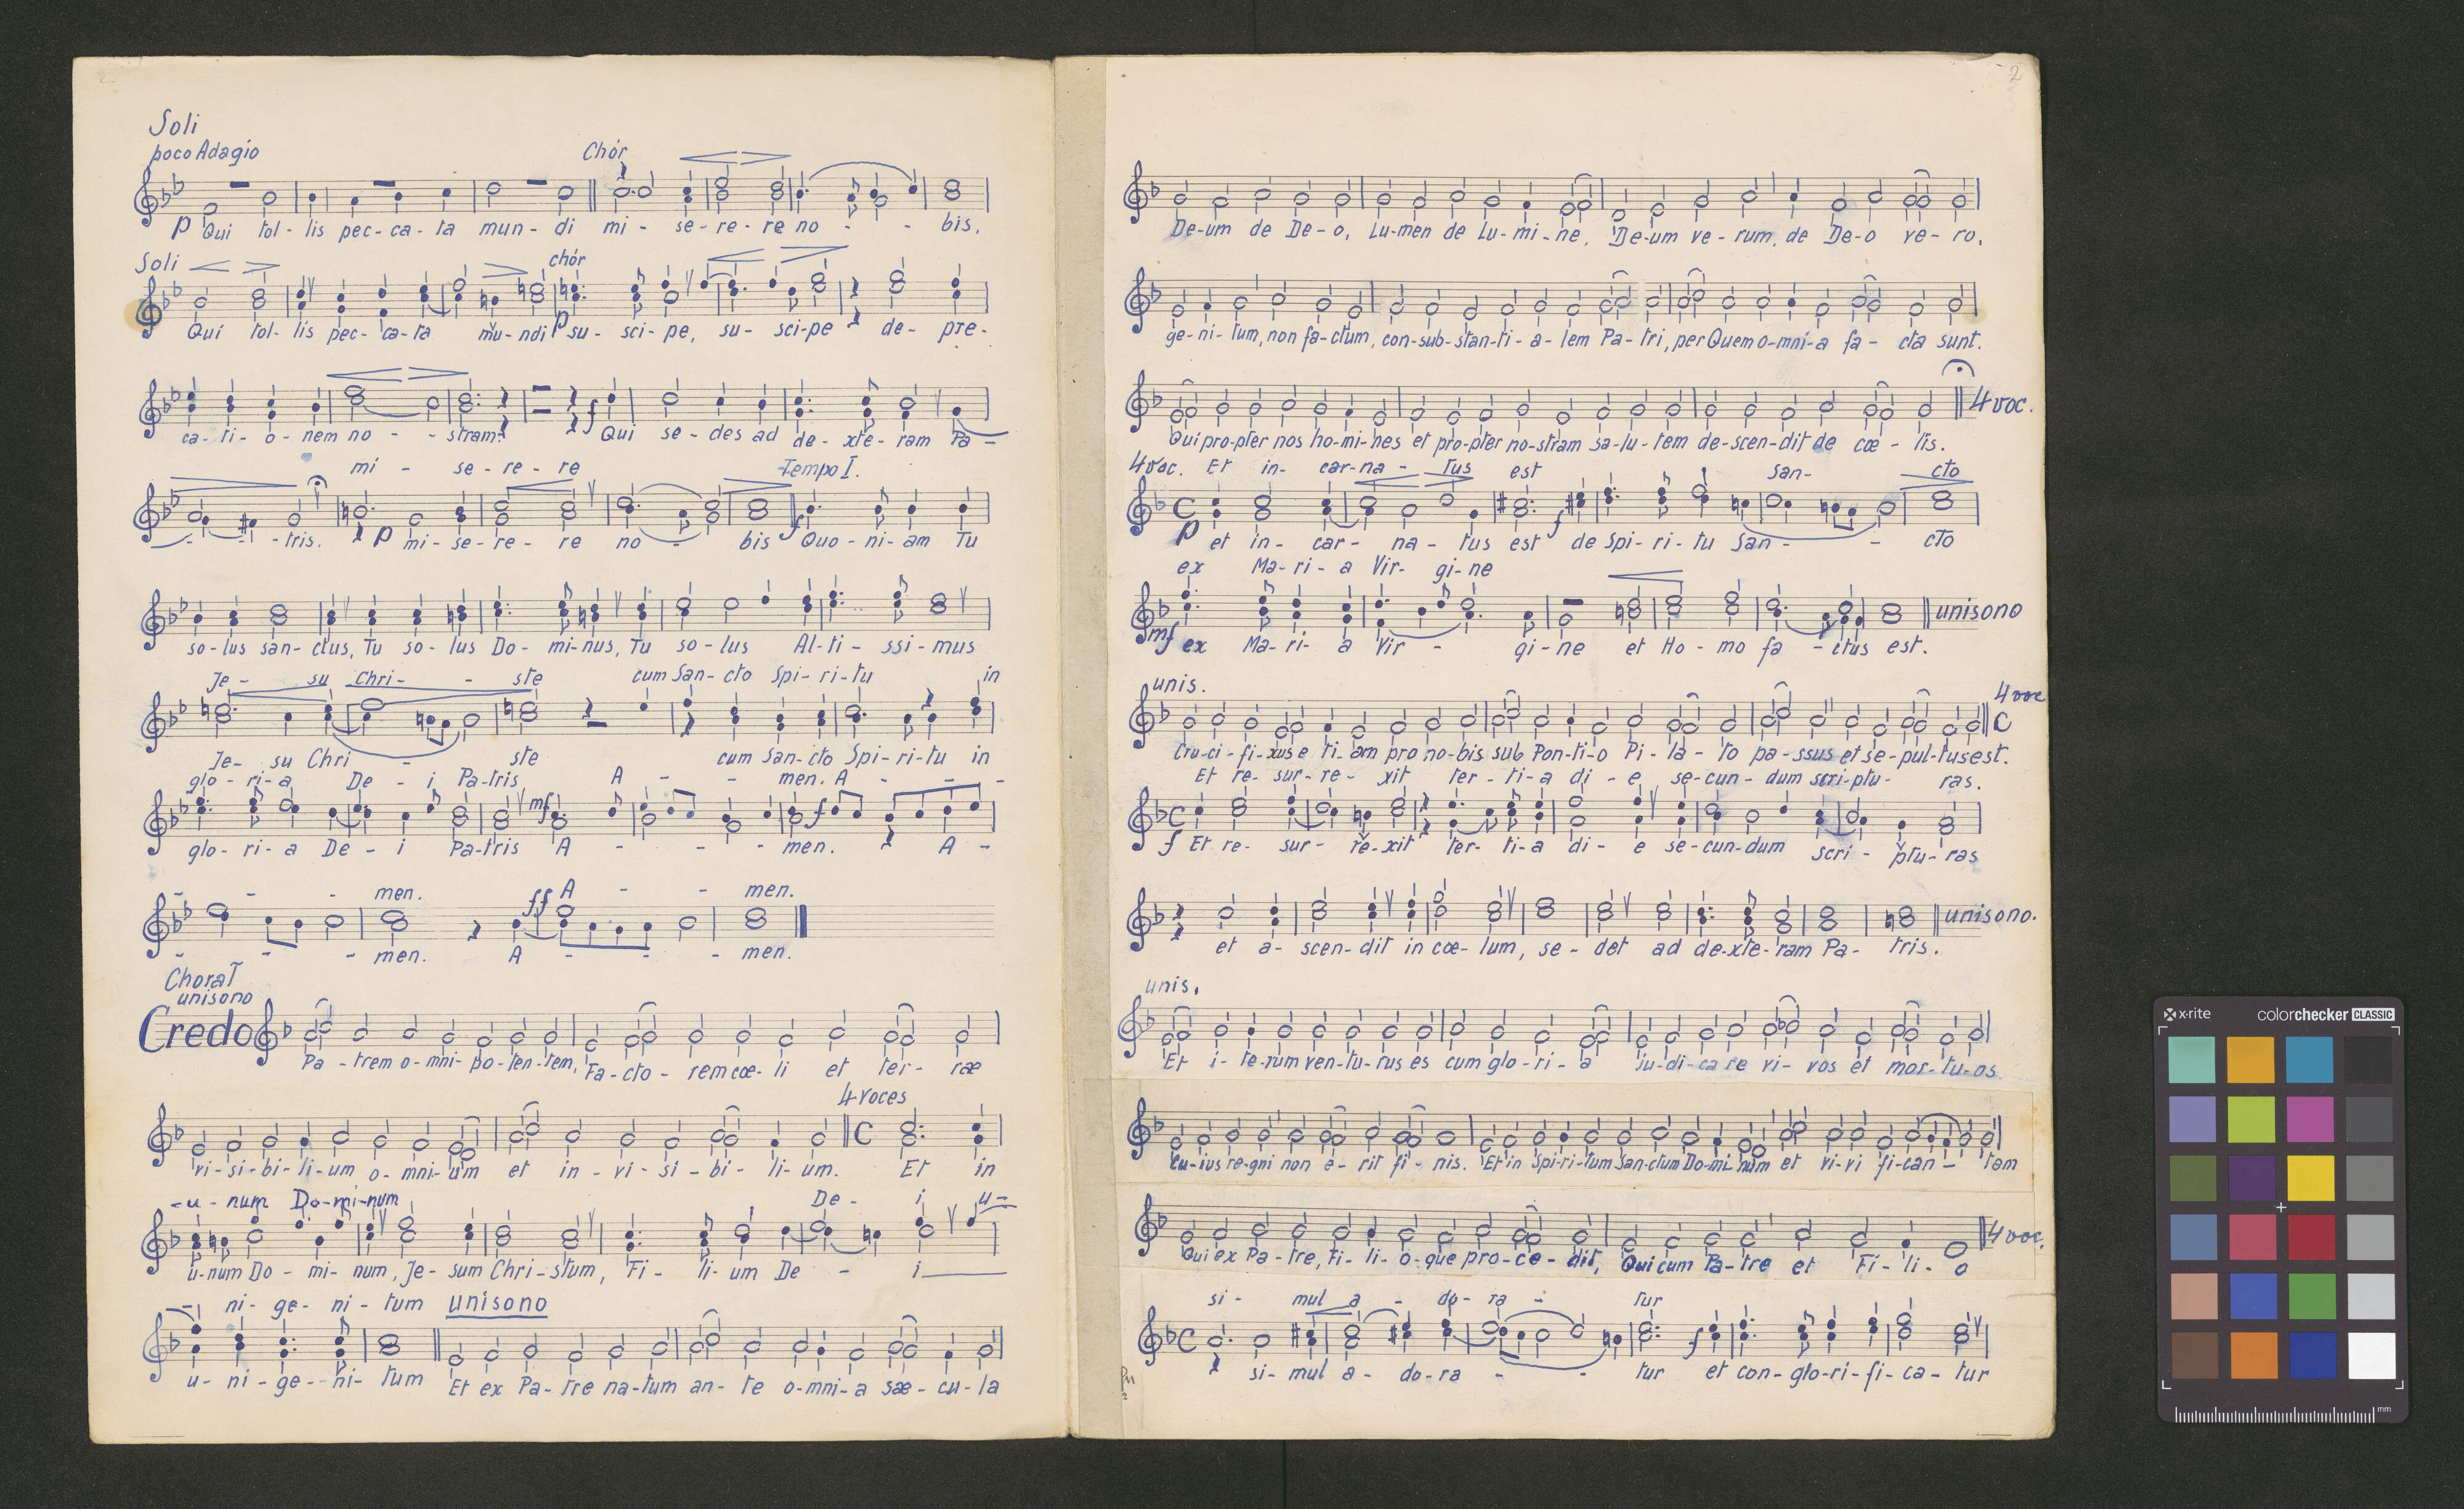 2
Soli
poco Adagio
Chór
p Qui tol- lis pec- ca- ta mun- di mi- se- re- re no - - bis,
Soli
chór
Qui tol- lis pec- ca- ta mu- ndi p su- sci- pe, su- sci- pe de- pre-
ca- ti- o- nem no - - stram. f Qui se- des ad de- xte- ram Pa-
mi - se- re- re Tempo I.
- - tris. p mi- se- re- re no - bis f Quo- ni- am Tu
so- lus san- ctus, Tu so- lus Do- mi- nus, Tu so- lus Al- ti- ssi- mus
Je- su Chri- - ste cum San- cto Spi- ri- tu in
Je- su Chri - ste cum San- cto Spi- ri- tu in
glo- ri- a De- i Pa- tris A - - men. A - - -
mf f
glo- ri- a De- i Pa- tris A - - - men. A -
- - - men. ff A - - men.
- - - men. A - - - men.
Choral
unisono
Credo
Pa- trem o- mni- po- ten- tem, Fa- cto- rem cœ- li et ter- ræ
4 voces
C
vi- si- bi- li- um o- mni- um et in- vi- si- bi- li- um. Et in
- u- num Do- mi- num De- i u-
u- num Do- mi- num, Je- sum Chri- stum, Fi- li- um De - i
- ni- ge- ni- tum unisono
u- ni- ge- ni- tum Et ex Pa- tre na- tum an- te o- mni- a sæ- cu- la
2
De- um de De- o, Lu- men de Lu- mi- ne, De- um ve- rum, de De- o ve- ro,
ge- ni- tum, non fa- ctum, con- sub- stan- ti- a- lem Pa- tri, per Quem o- mni- a fa- cta sunt.
4 voc.
Qui pro- pter nos ho- mi- nes et pro- pter no- stram sa- lu- tem de- scen- dit de cœ- lis.
4 voc. Et in- car- na- tus est San- cto
C
p et in- car- na- tus est f de Spi- ri- tu San- - cto
ex Ma- ri- a Vir- gi- ne
unisono
mf ex Ma- ri- a Vir - gi- ne et Ho- mo fa- ctus est.
unis.
4 voc
C
Cru- ci- fi- xus e ti- am pro no- bis sub Pon- ti- o Pi- la- to pa- ssus et se- pul- tus est.
Et re- sur- re- xit ter- ti- a di- e se- cun- dum scri- ptu- ras.
C
f Et re- sur- re- xit ter- ti- a di- e se- cun- dum scri- ptu- ras
unisono.
et a- scen- dit in cœ- lum, se- det ad de- xte- ram Pa- tris.
unis.
Et i- te- rum ven- tu- rus es cum glo- ri- a iu- di- ca re vi- vos et mor- tu- os.
Cu- ius re- gni non e- rit fi- nis. Et in Spi- ri- tum San- ctum Do- mi- num et vi- vi fi- can- tem
4 voc.
Qui ex Pa- tre, Fi- li- o- que pro- ce- dit, Qui cum Pa- tre et Fi- li- o
si- mul a - do- ra - tur
C f
si- mul a- do- ra - - tur et con- glo- ri- fi- ca- tur
x-rite colorchecker CLASSIC
mm